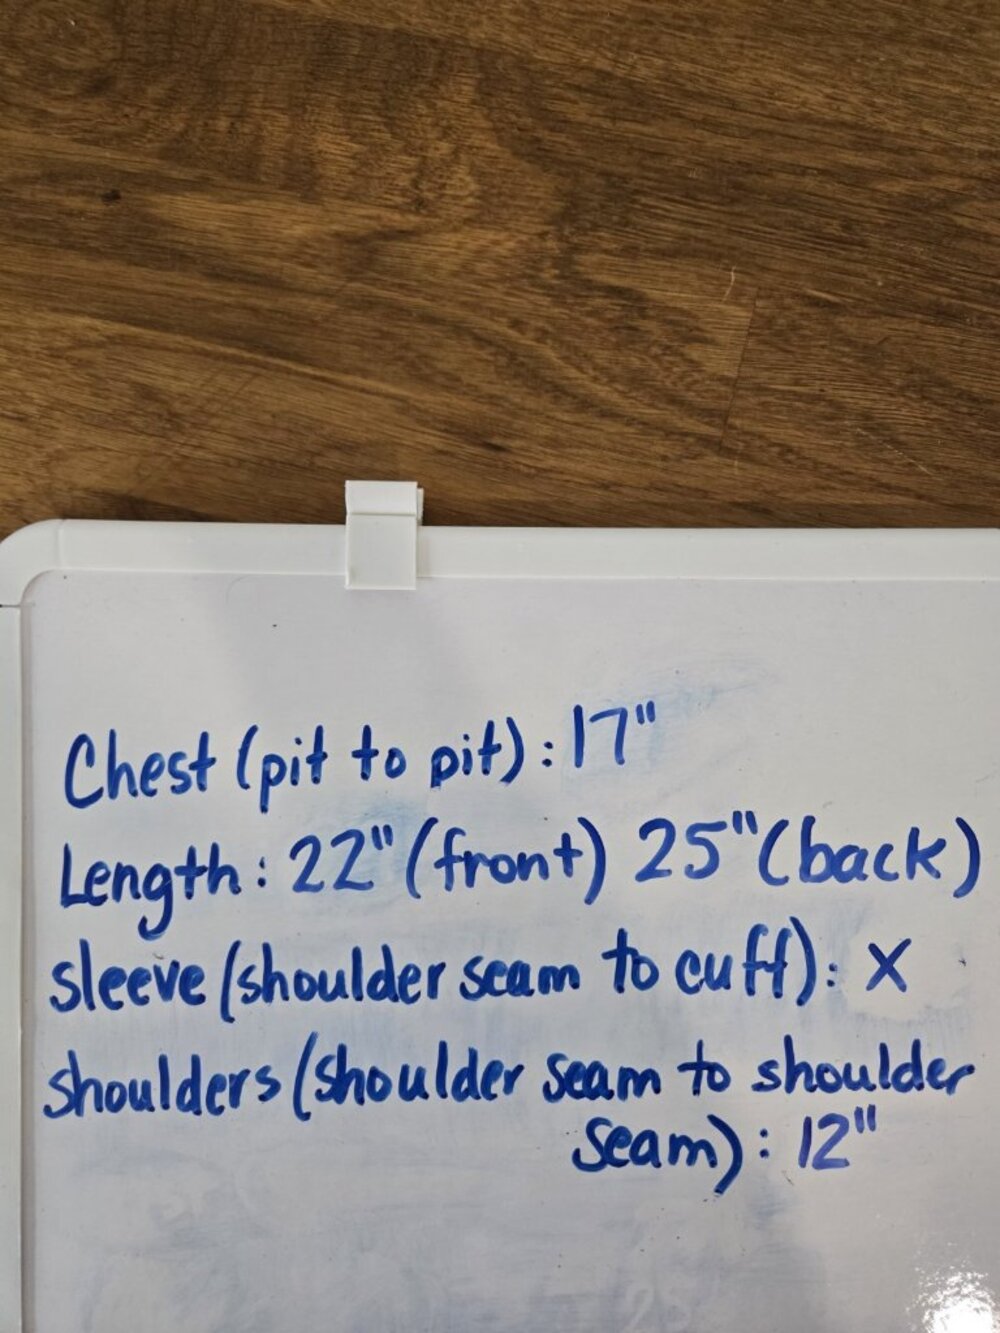 Chest (pit to pit): 17"
Length: 22" (front) 25" (back)
sleeve (shoulder seam to cuff): X
shoulders (shoulder seam to shoulder
seam): 12"